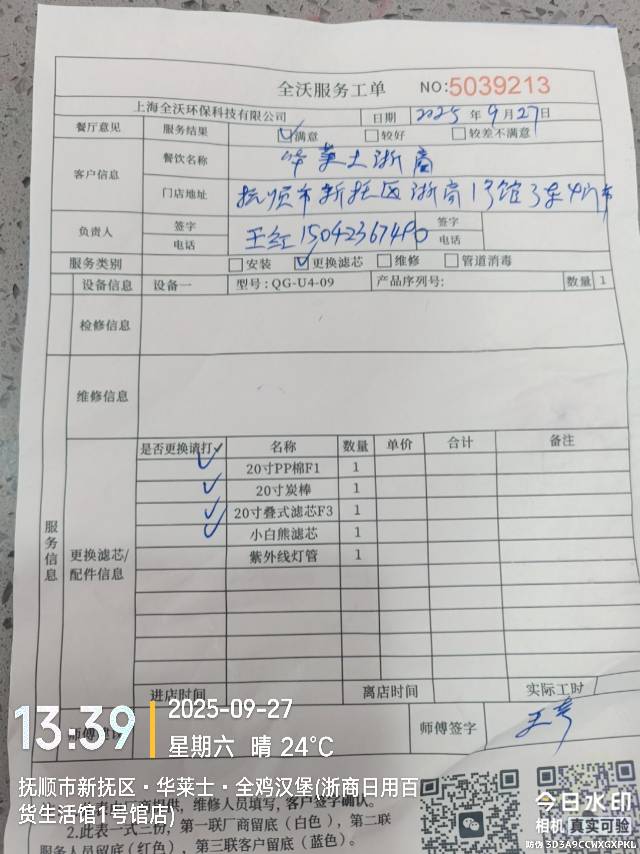 全沃服务工单 NO:5039213
上海全沃环保科技有限公司 日期 2025 年 9 月 27 日
餐厅意见 服务结果 满意 较好 较差不满意
客户信息 餐饮名称 华莱士浙商
门店地址 抚顺市新抚区浙商1号馆3车4门市
负责人 签字 王红 签字
电话 15042367490 电话
服务类别 安装 更换滤芯 维修 管道消毒
设备信息 设备一 型号：QG-U4-09 产品序列号: 数量 1
检修信息
维修信息
服务信息
更换滤芯/配件信息
是否更换请打✓ 名称 数量 单价 合计 备注
✓ 20寸PP棉F1 1
✓ 20寸炭棒 1
✓ 20寸叠式滤芯F3 1
✓ 小白熊滤芯 1
紫外线灯管 1
进店时间 离店时间 实际工时
师傅签字
13:39 2025-09-27
星期六 晴 24℃
抚顺市新抚区·华莱士·全鸡汉堡(浙商日用百
货生活馆1号馆店)
提供，维修人员填写，客户签字确认。
2.此表一式三份，第一联厂商留底（白色），第二联
服务人员留底(红色)，第三联客户留底（蓝色）。
今日水印
相机 真实可验
防伪 3D3A9CCWXGXPKL